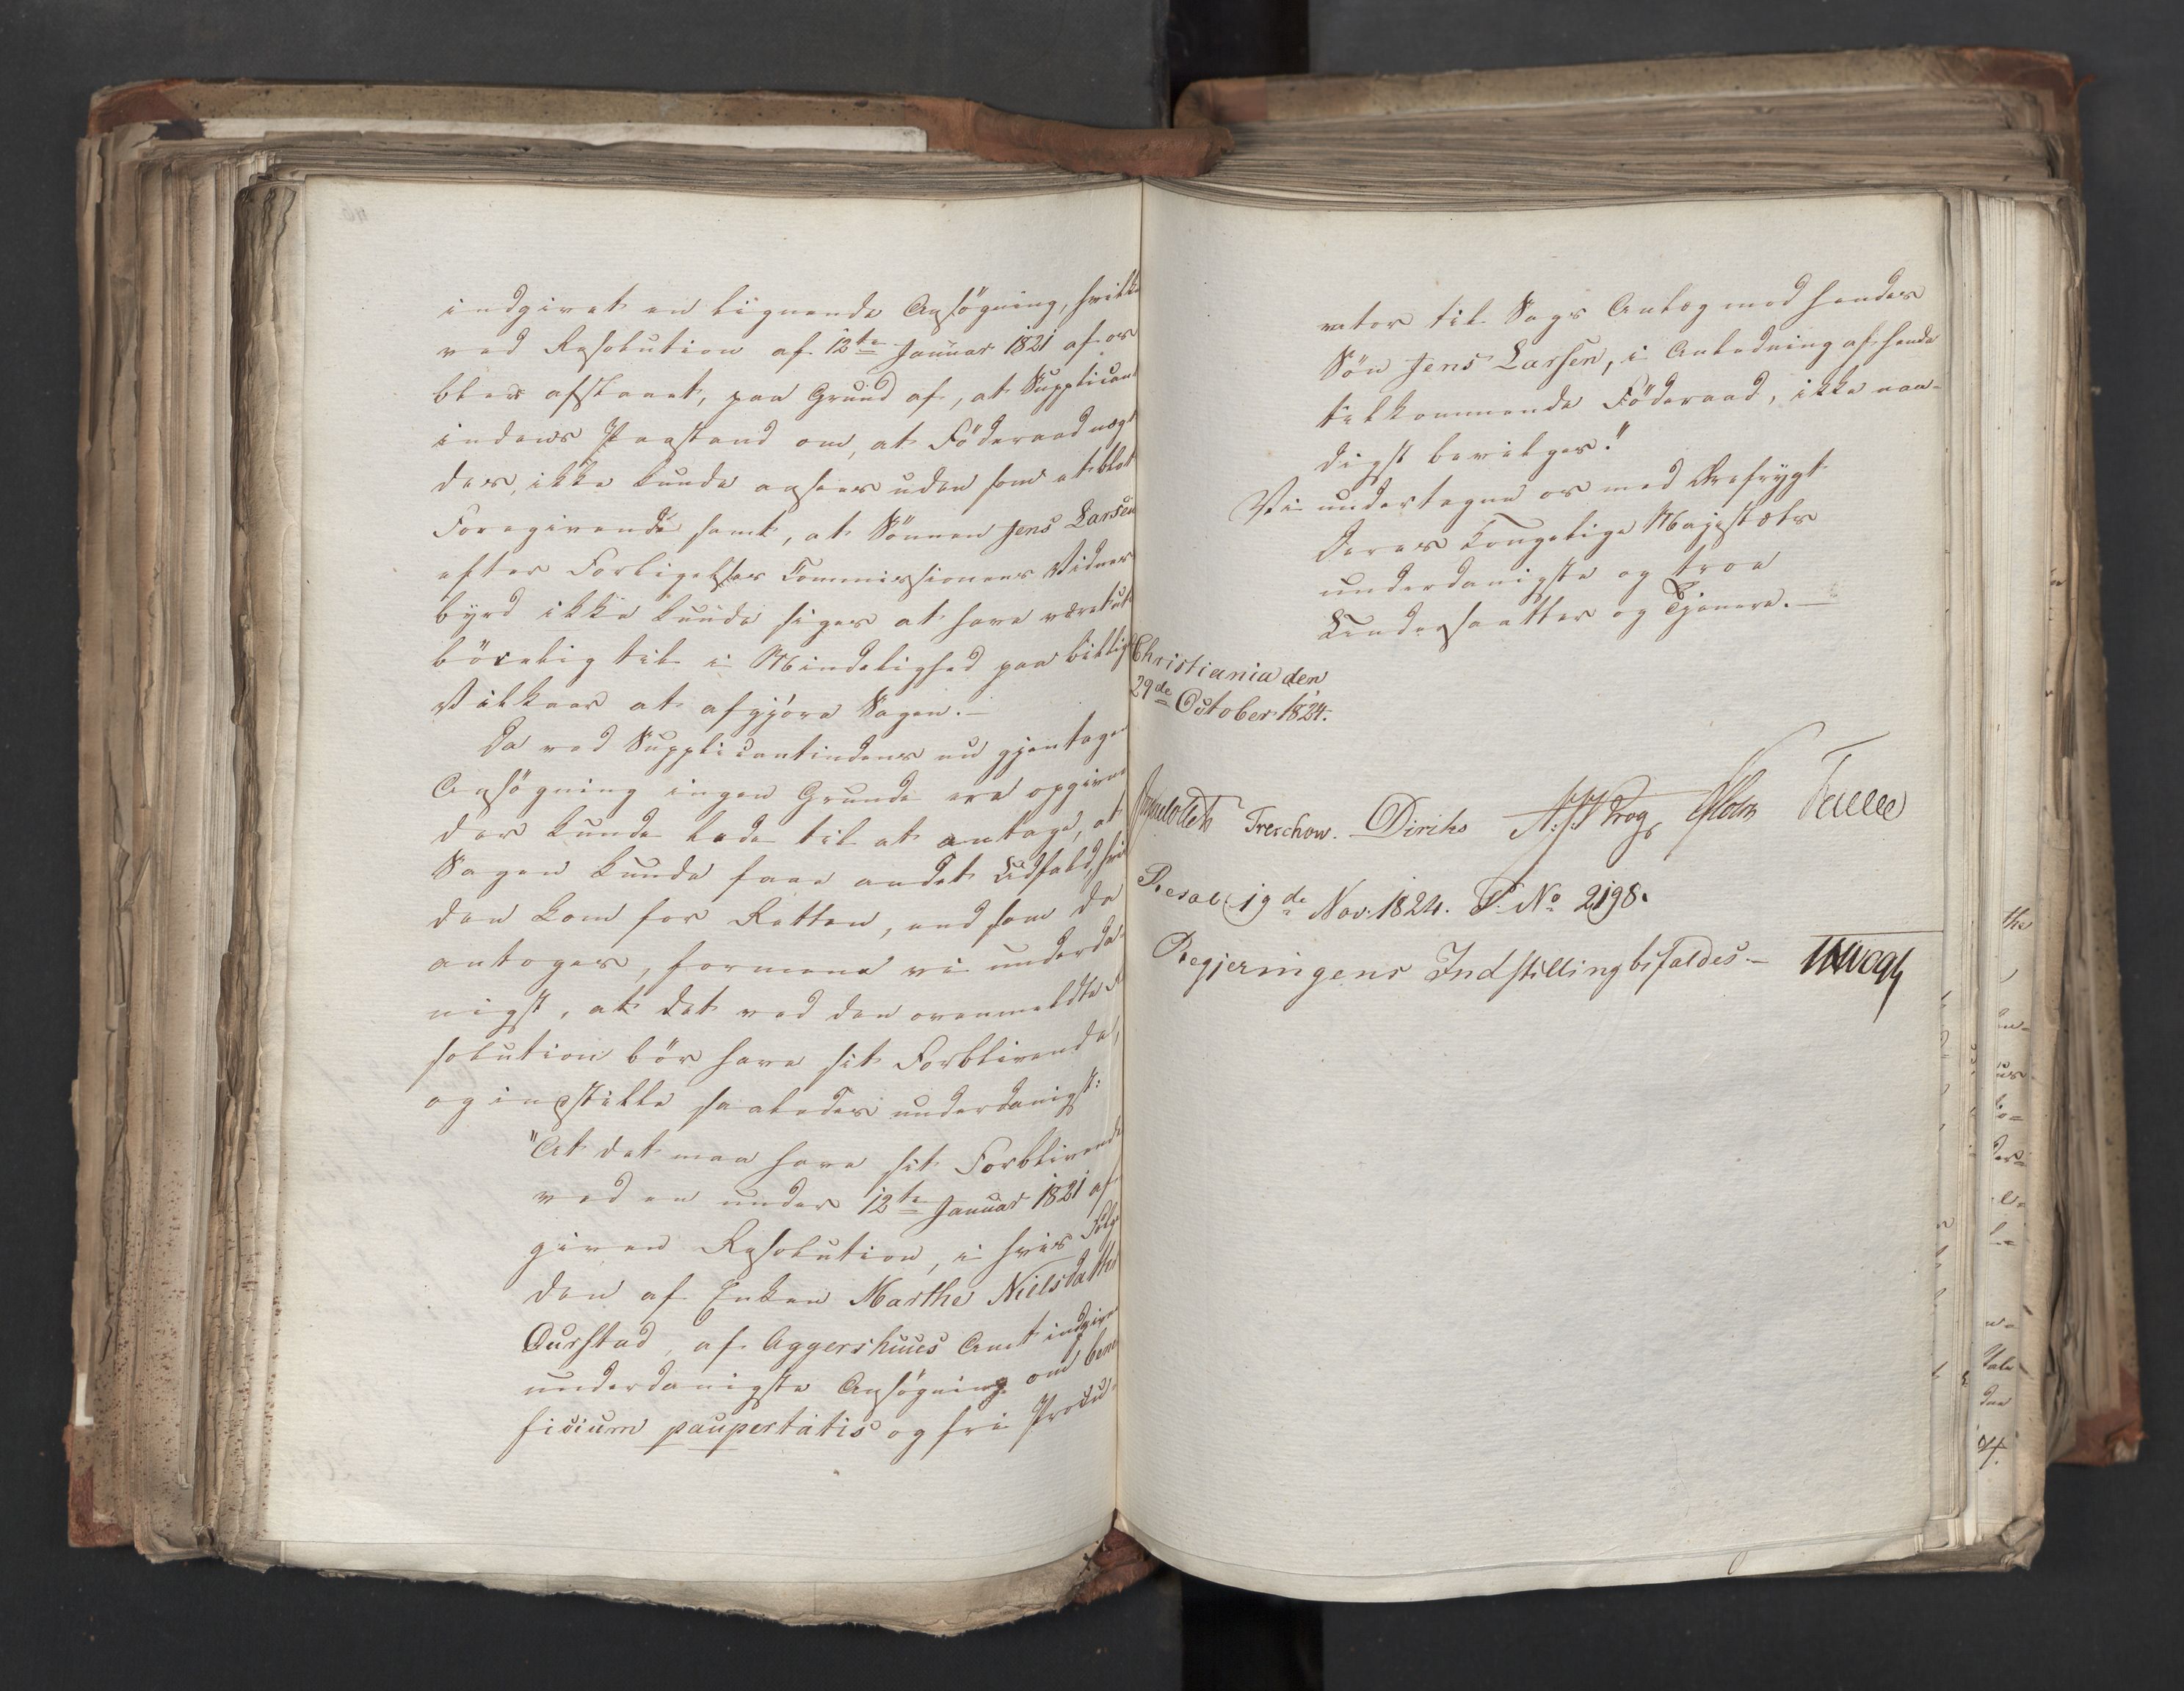 indgivet en lignende Ansögning, hvilke
ved Resolution af 12te Januar 1821 af os
blev afslaaet, paa Grund af, at Supplican
indens Paastand om, at Föderaad nægt
des, ikke kunde ansees uden som et blot
Foregivende samt, at Sönnen Jens Larsen
efter Forligelses Commissionens Vidnes
byrd ikke kunde siges at have været uti
böielig til i Mindelighed paa billig
Vilkaar at afgjöre Sagen. -
Da ved Supplicantindens nu gjentage
Ansögning ingen Grunde ere opgivne
der kunde lede til at antage, at
Sagen kunde faae andet Udfald, hvis
den kom for Retten, end som da
antoges, formene vi underda-
nigst, at det ved den ovenmeldte Re
solution bör have sit Forblivende,
og indstille saaledes underdanigst:
"At det maa have sit Forblivende
ved en under 12te Januar 1821 af
given Resolution, i hvis Fölge
den af Enken Marthe Nielsdatter
Ourstad, af Aggershuus Amt indgivne
underdanigste Ansögning om bene
ficium paupertatis og fri Procu-
rator til Sags Anlæg mod hendes
Sön Jens Larsen, i Anledning af hende
tilkommende Föderaad, ikke naa-
digst bevilges."
Vi undertegne os med Ærefrygt
Deres Kongelige Majestæts
underdanigste og troe
Undersaatter og Tjenere. -
Christiania den
29de October 1824.
Treschow. Diriks Krog Holst Fasting
Resol. 19de Nov. 1824. P. No 2198.
Regjeringens Indstilling bifaldes -